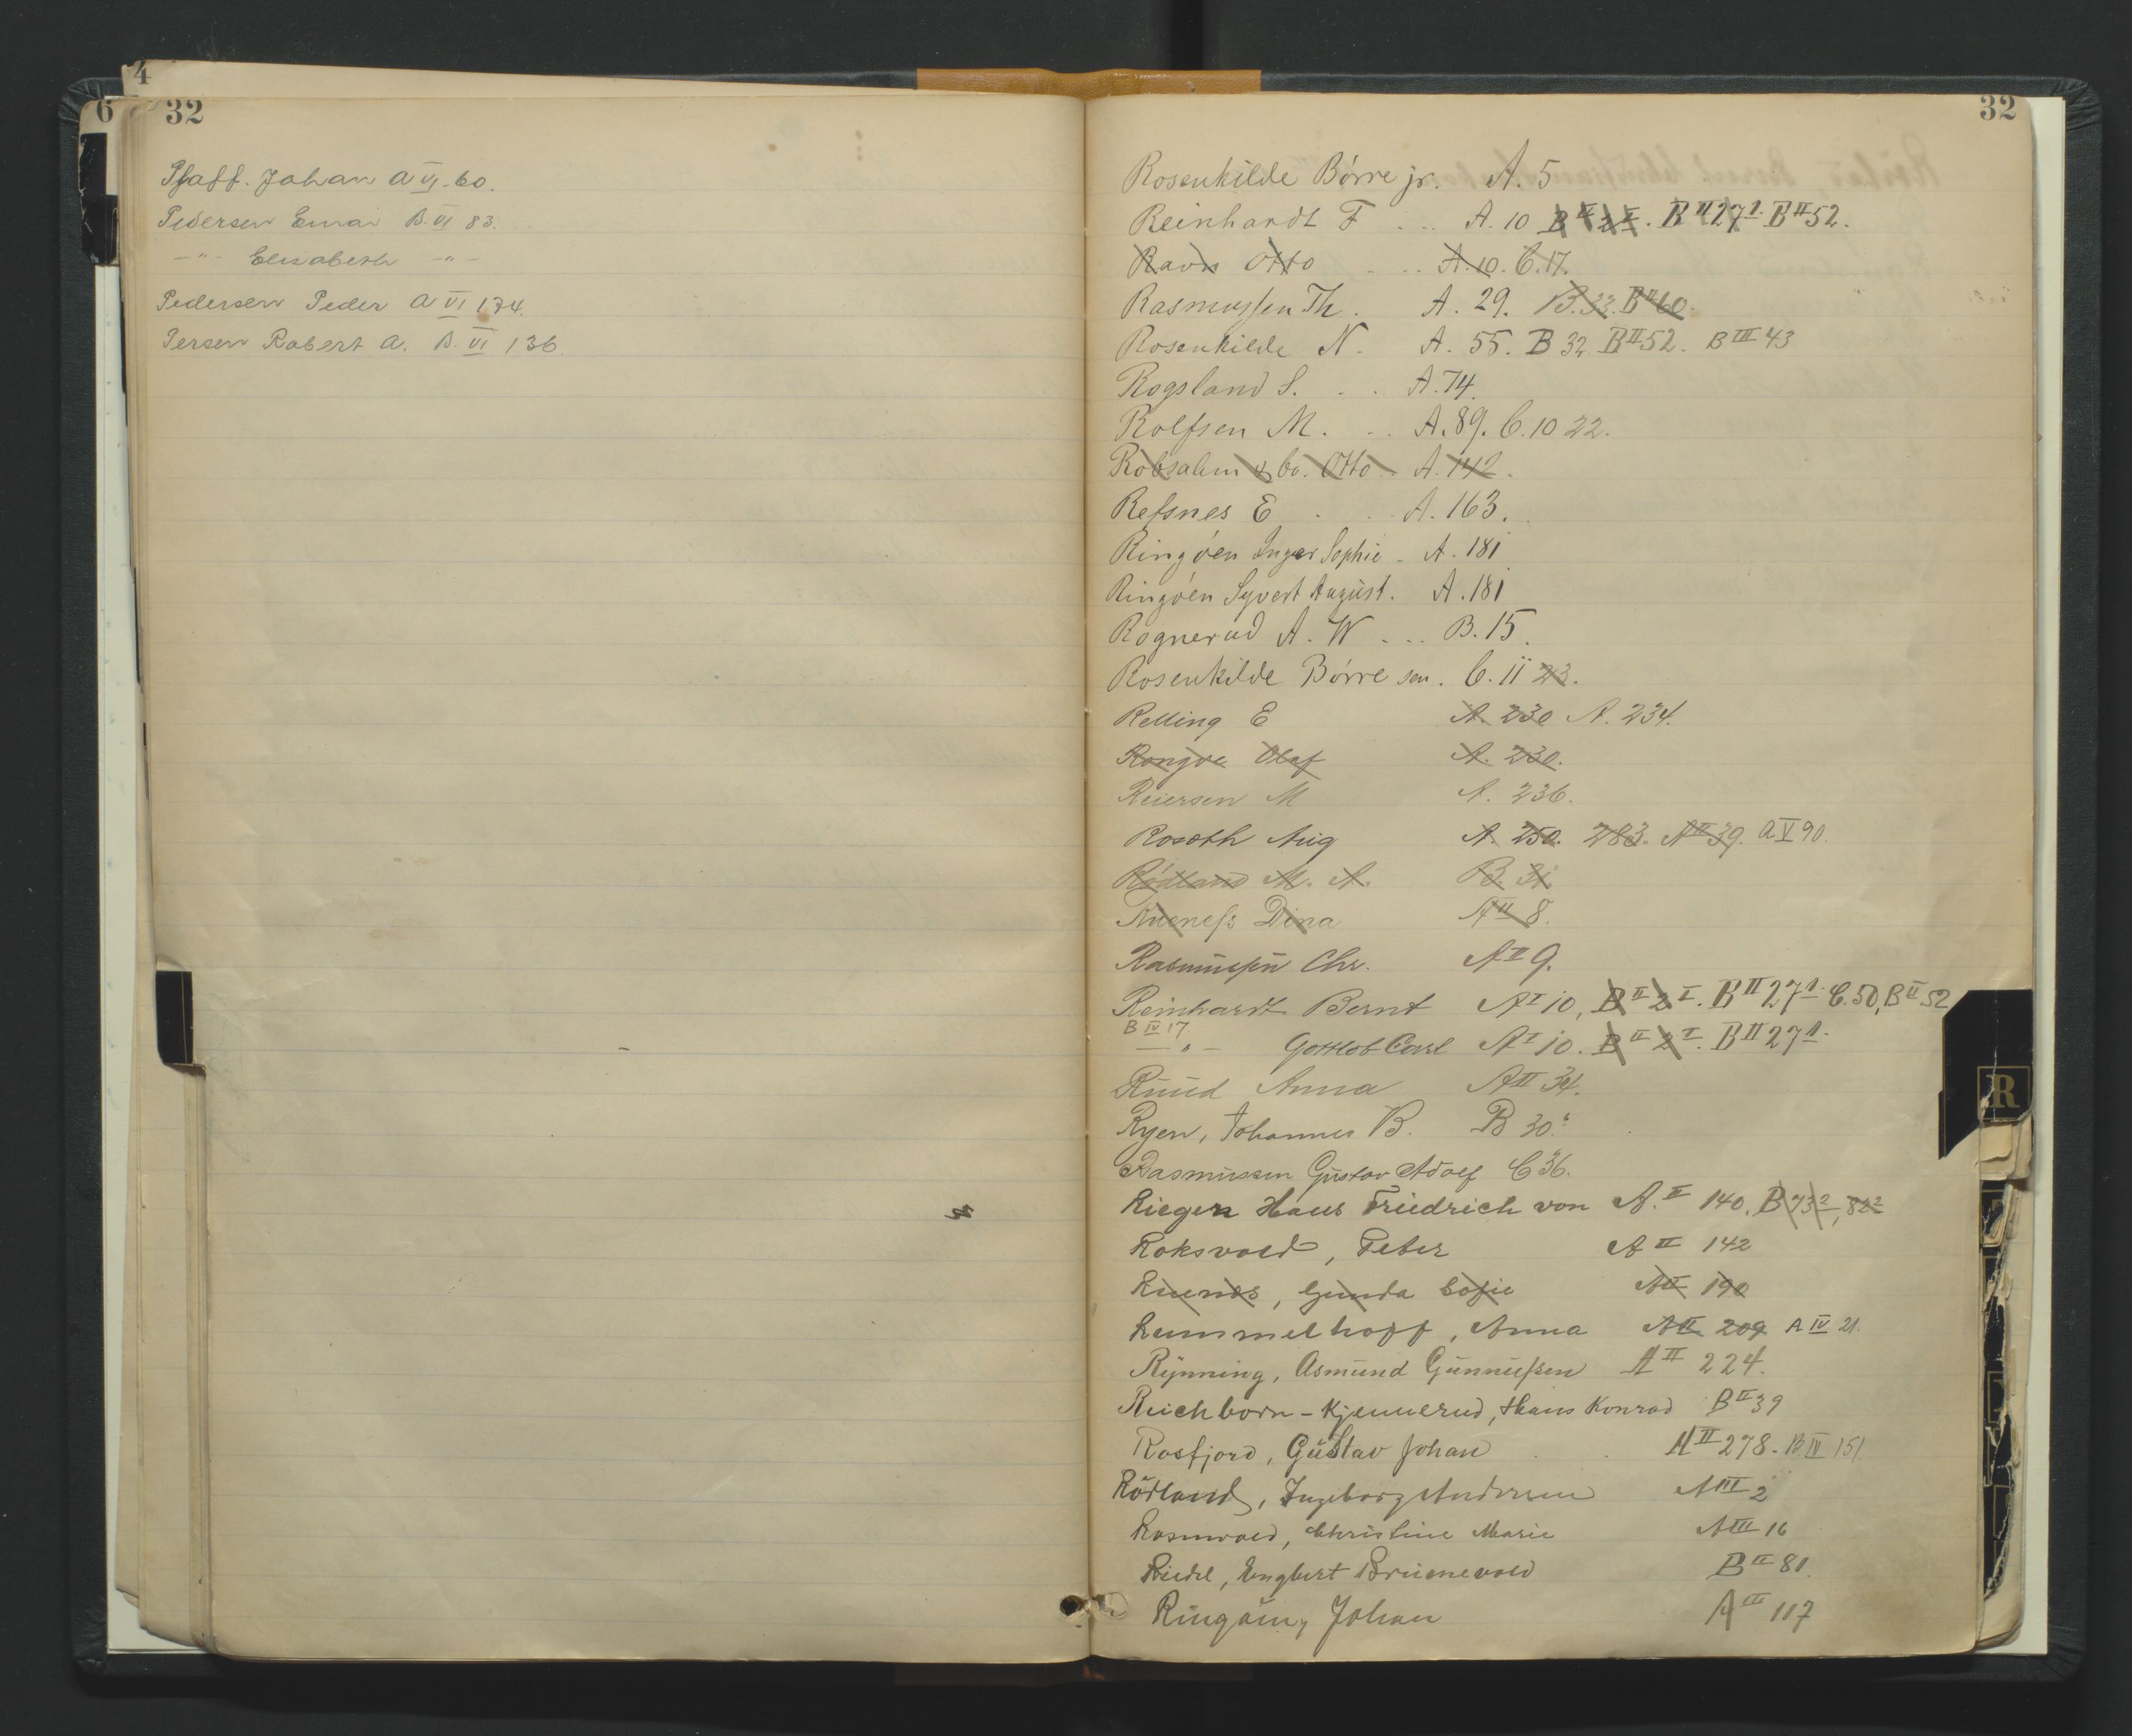 4
6 32
Pfaff. Johan A VI. 60.
Pedersen Einar B. VI 83.
—"— Elisabeth —"—
Pedersen Peder A VI 174.
Persen Robert A. B. VI 136.
32
Rosenkilde Börre jr. A. 5
Reinhardt F ... A. 10 B II 2 I. B II 27 1. B II 52.
Ravn Otto ... A. 10. C. 17.
Rasmussen Th. A. 29. B. 33. B II 60.
Rosenkilde N. A. 55. B 32. B II 52. B III 43
Rogsland S. . . A. 74.
Rolfsen M. . . A. 89. C. 10 22.
Robsahm & Co. Otto A. 142.
Refsnes E . . A. 163.
Ringöen Inger Sophie - A. 181
Ringöen Syvert August. A. 181
Rognerud A. W ... B. 15.
Rosenkilde Börre sen. C. 11 23.
Relling E A. 230 A. 234.
Rongve Olaf A. 230.
Reiersen M A. 236.
Rosoth Aug A. 250. 283. A II 39. A V 90.
Rödland M. A. B. 31
Dina A II 8.
Rasmussen Chr. A II 9.
Reinhardt Bernt A I 10, B II 2 I. B II 27 1. C. 50, B II 52
B IV 17.
—"— Gottlob Carl A I 10. B II 2 I. B II 27 1.
Ruud Anna A II 34.
Ryen, Johannes B. B 30.
Rasmussen Gustav Adolf C 36.
Riegen Hans Friedrich von A. II 140. B 73 2, 82 2
Roksvold, Peter A II 142
Ruenæs, Gunda Sofie A II 190
Rummelhoff, Anna A II 209 A IV 21.
Rynning, Asmund Gunnufsen A II 224.
Reichborn-Kjennerud, Hans Konrad B II 39
Rosfjord, Gustav Johan A II 278. B IV 151
Rödland, Ingeborg Andersen A III 2
Rosenvold, Christine Marie A III 16
Riedel, Engbert Brunevold B II 81.
Ringöen, Johan A III 117
R